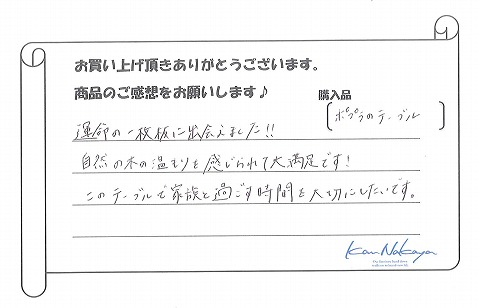 お買い上げ頂きありがとうございます。
商品のご感想をお願いします♪
購入品
[ポプラのテーブル]
運命の一枚板に出会えました!!
自然の木の温もりを感じられて大満足です!
このテーブルで家族と過ごす時間を大切にしたいです。
Kan Nakaya